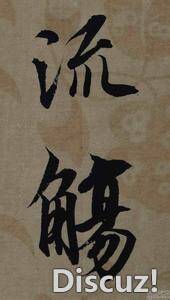 流
觴
Discuz!